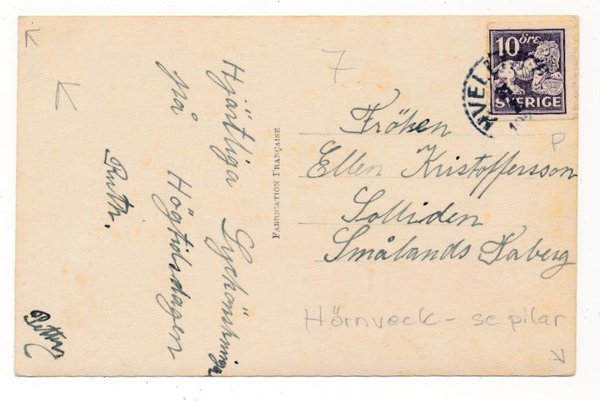 Hjärtliga Lyckönskningar
på Högtidsdagen
Ruth.
FABRICATION FRANÇAISE
7
10 ÖRE
SVERIGE
HVE
Fröken
Ellen Kristoffersson
Solliden
Smålands Taberg
P
Hörnveck - se pilar